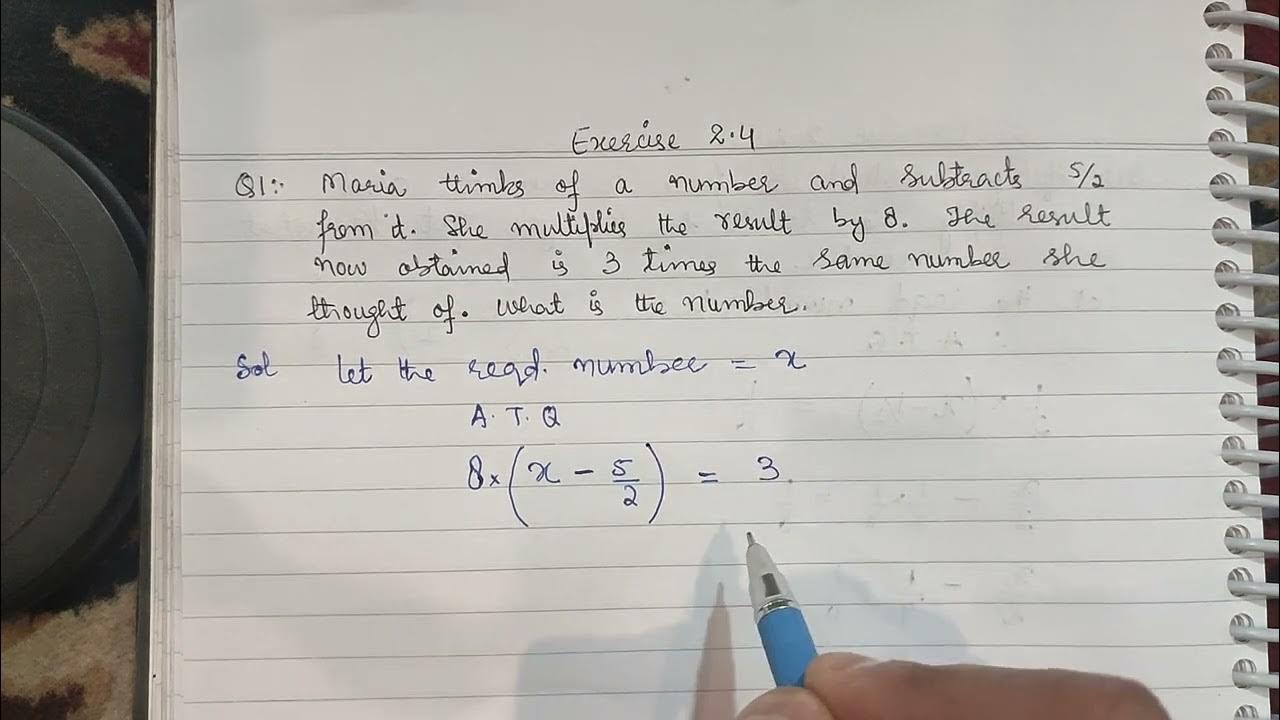 Exercise 2.4
Q1:- Maria thinks of a number and subtracts 5/2
from it. She multiplies the result by 8. The result
now obtained is 3 times the same number she
thought of. What is the number.
Sol Let the reqd. number = x
A.T.Q
8×(x - 5/2) = 3